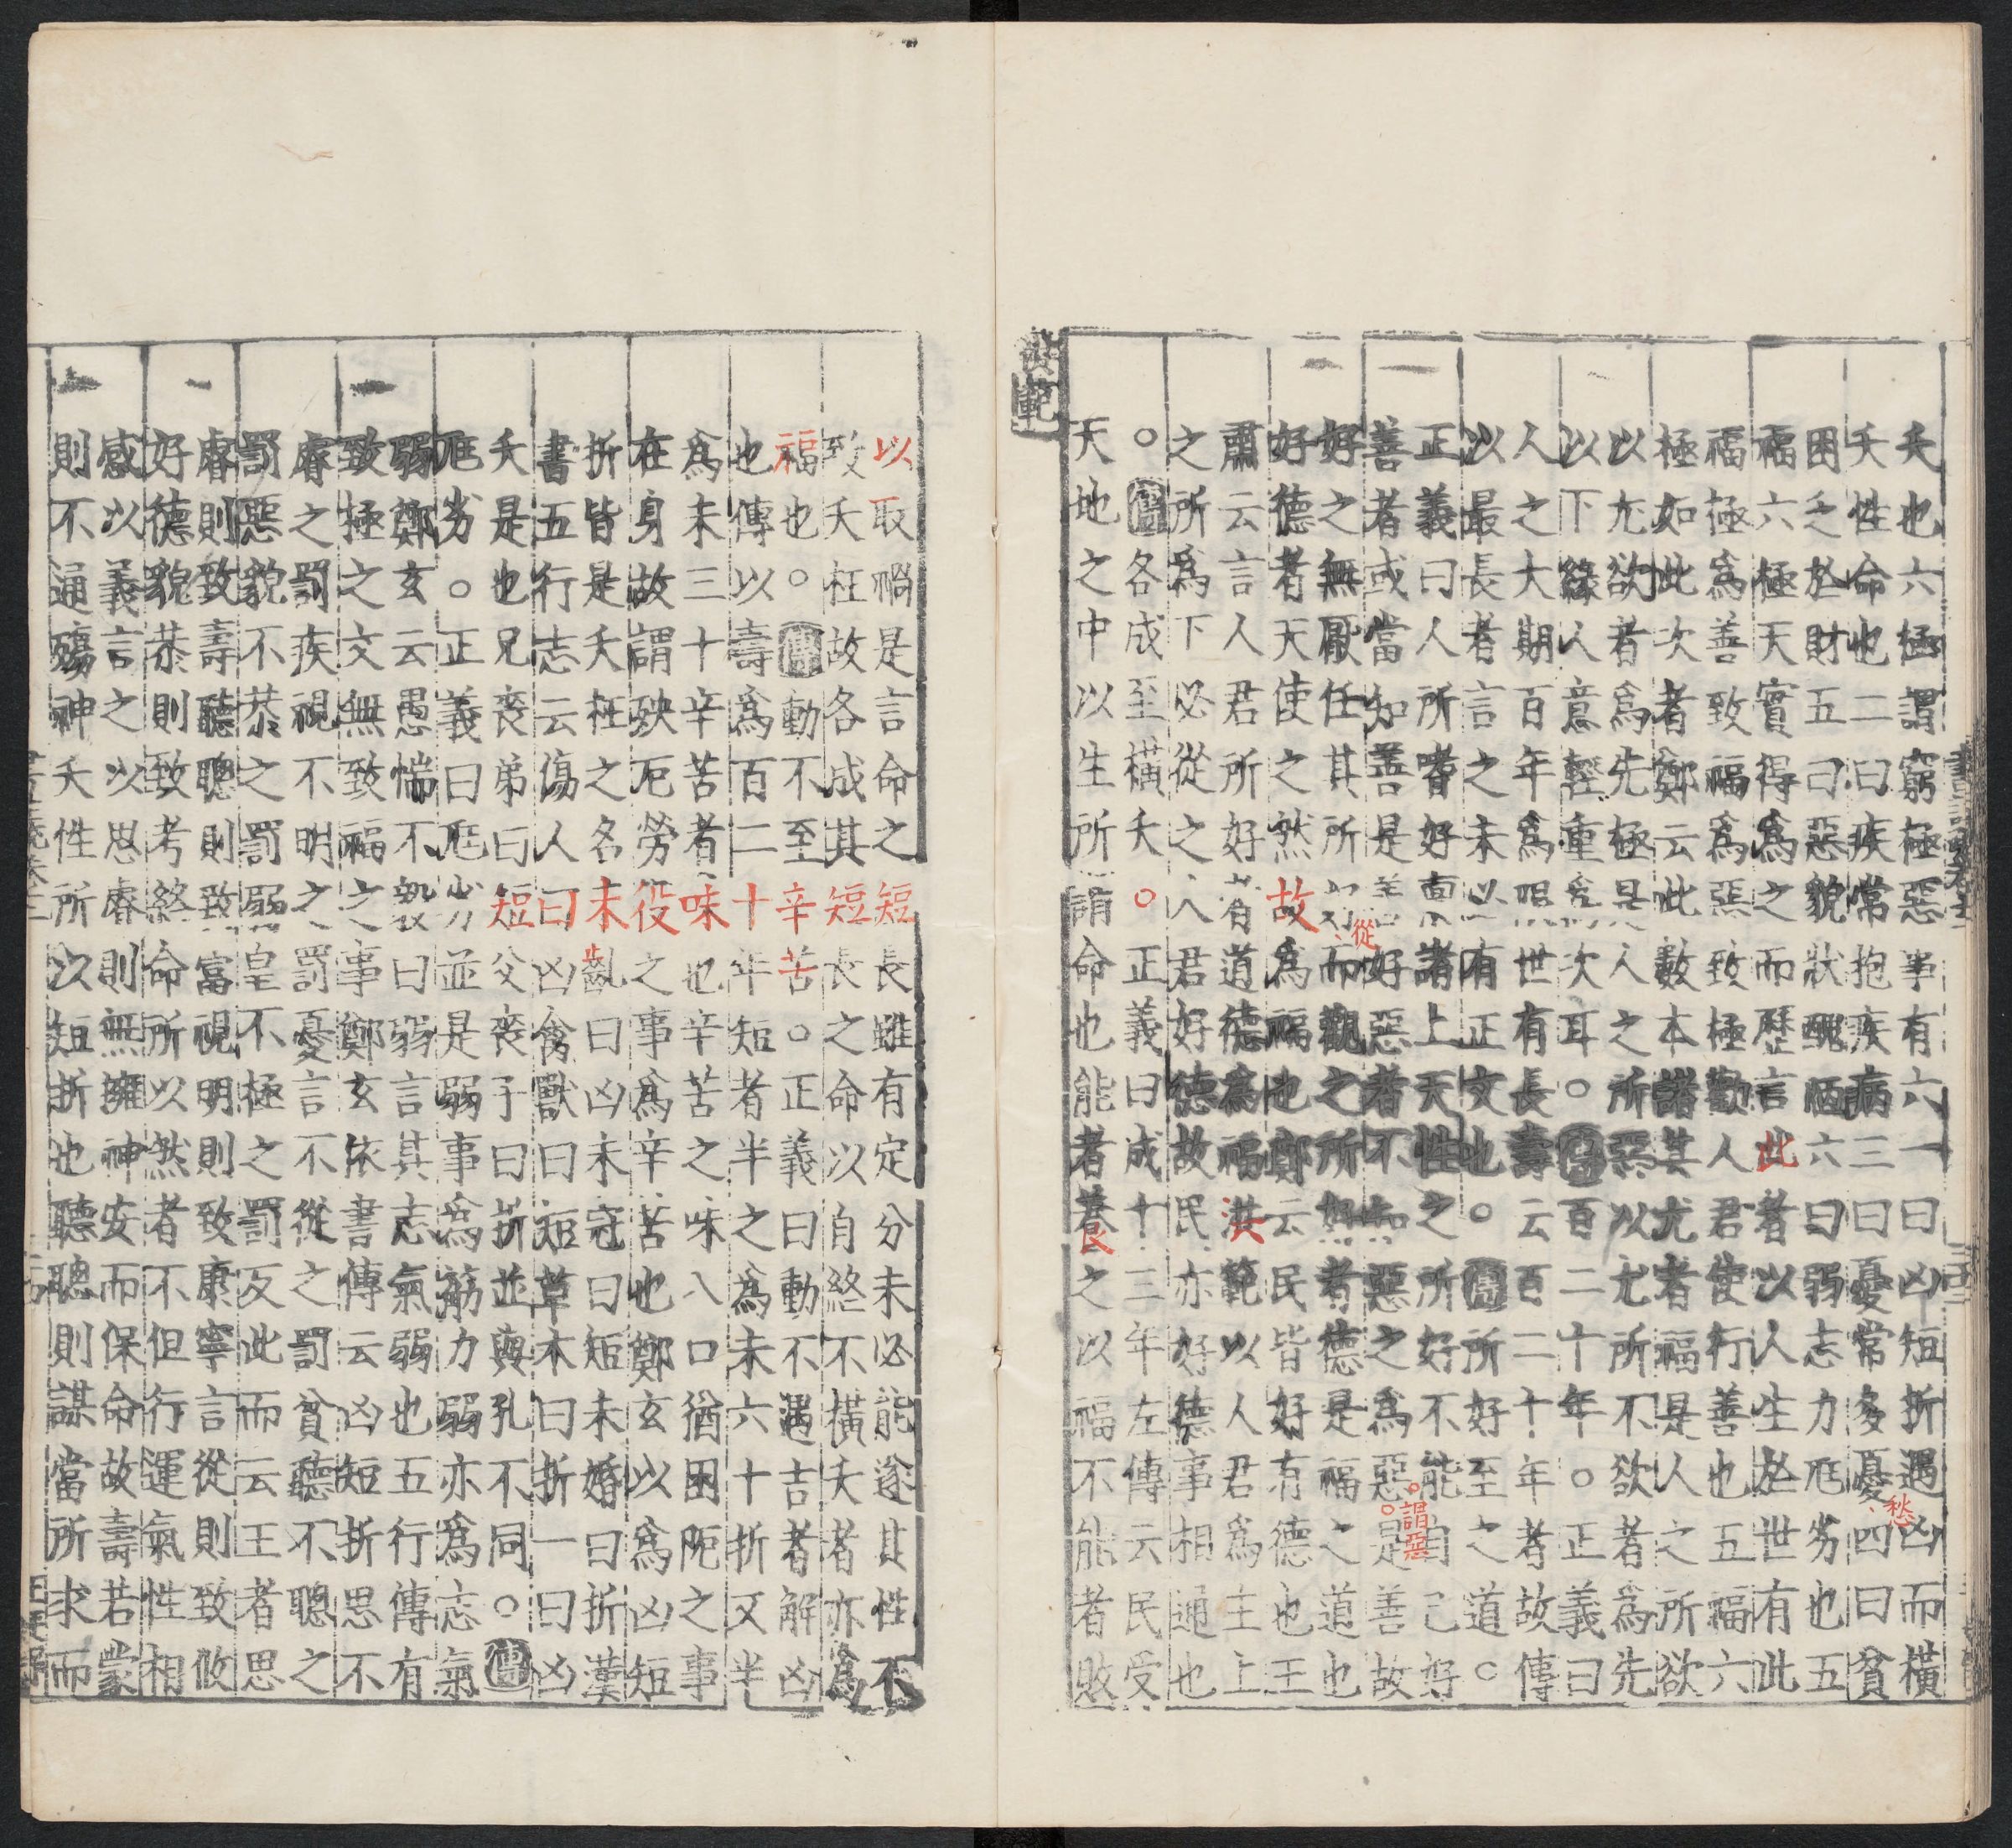 夭也六極謂窮極惡事有六一曰凶短折遇凶而橫
愁
夭性命也二曰疾常抱疾病三曰憂常多憂四曰貧
困乏於財五曰惡貌狀醜陋六曰弱志力尫劣也五
福六極天實得爲之而歷言此者以人生於世有此
福極爲善致福爲惡致極勸人君使行善也五福六
極如此次者鄭云此數本諸其尤者福是人之所欲
以尤欲者爲先極是人之所惡以尤所不欲者爲先
以下緣人意輕重爲次耳○傳百二十年○正義曰
人之大期百年爲限世有長壽云百二十年者故傳
以最長者言之未必有正文也○傳所好至之道○
正義曰人所嗜好稟諸上天性之所好不能自已好
謂惡
善者或當知善是善好惡者不知惡之爲惡是善故
從
好之無厭任其所好而觀之所好者德是福之道也
好德者天使之然故爲福也鄭云民皆好有德也王
肅云言人君所好者道德爲福洪範以人君爲主上
之所爲下必從之人君好德故民亦好德事相通也
○傳各成至橫夭○正義曰成十三年左傳云民受
天地之中以生所謂命也能者養之以福不能者敗
良
洪範
以取禍是言命之短長雖有定分未必能遂其性不
致夭枉故各成其短長之命以自終不橫夭者亦爲
福也○傳動不至辛苦○正義曰動不遇吉者解凶
也傳以壽爲百二十年短者半之爲未六十折又半
爲未三十辛苦者味也辛苦之味入口猶困阨之事
在身故謂殃厄勞役之事爲辛苦也鄭玄以爲凶短
折皆是夭枉之名未齔曰凶未冠曰短未婚曰折漢
書五行志云傷人曰凶禽獸曰短草木曰折一曰凶
夭是也兄喪弟曰短父喪子曰折並與孔不同○傳
尫劣○正義曰尫劣並是弱事爲筋力弱亦爲志氣
弱鄭玄云愚懦不毅曰弱言其志氣弱也五行傳有
致極之文無致福之事鄭玄依書傳云凶短折思不
睿之罰疾視不明之罰憂言不從之罰貧聽不聰之
罰惡貌不恭之罰弱皇不極之罰反此而云王者思
睿則致壽聽聰則致富視明則致康寧言從則致攸
好德貌恭則致考終命所以然者不但行運氣性相
感以義言之以思睿則無擁神安而保命故壽若蒙
則不通殤神夭性所以短折也聽聰則謀當所求而